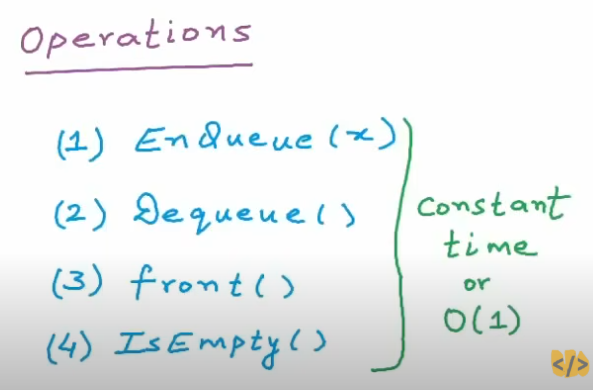 Operations
(1) EnQueue(x)
(2) Dequeue()
(3) front()
(4) IsEmpty()
constant
time
or
O(1)
</>